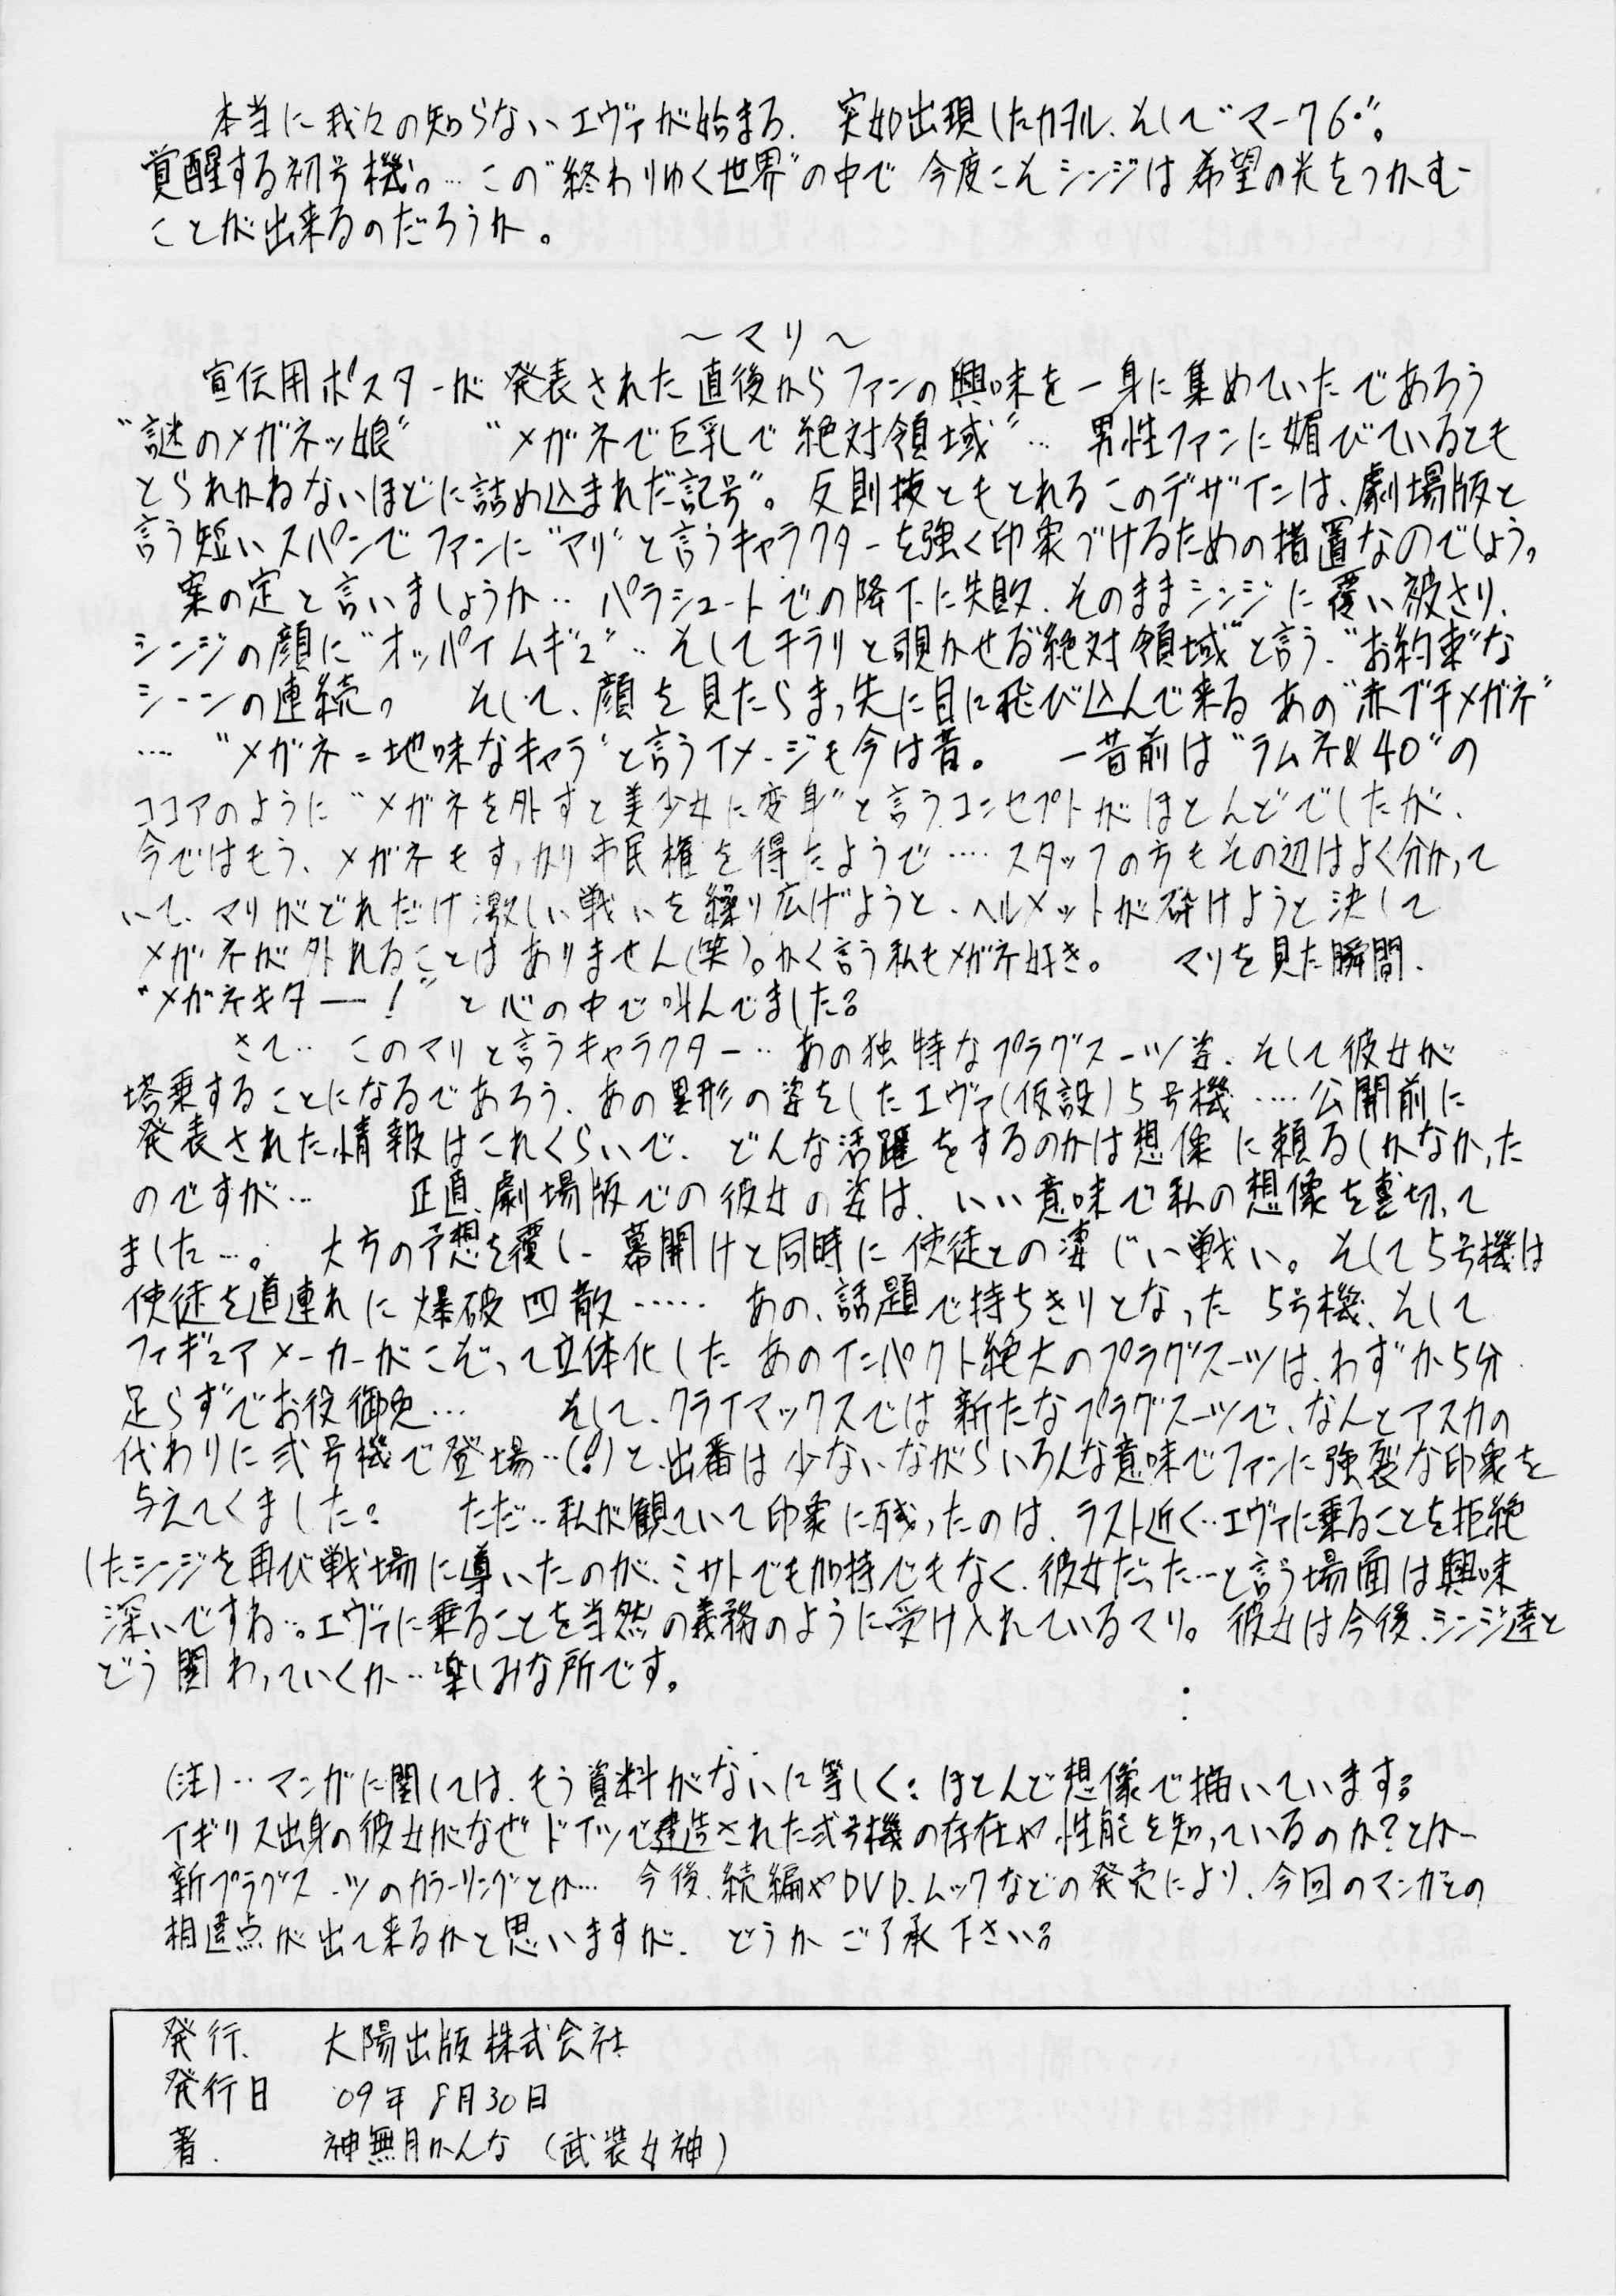 本当に我々の知らないエヴァが始まる、突如出現したカヲル、そして“マーク6”。
覚醒する初号機。… この“終わりゆく世界”の中で 今度こそシンジは希望の光をつかむ
ことが出来るのだろうか。
～マリ～
宣伝用ポスターが発表された直後からファンの興味を一身に集めていたであろう
“謎のメガネッ娘” “メガネで巨乳で絶対領域”… 男性ファンに媚びているとも
とられかねないほどに詰め込まれた“記号”。反則技ともとれるこのデザインは、劇場版と
言う短いスパンでファンに“マリ”と言うキャラクターを強く印象づけるための措置なのでしょう。
案の定と言いましょうか‥ パラシュートでの降下に失敗、そのままシンジに覆い被さり、
シンジの顔に“オッパイムギュ”‥そしてチラリと覗かせる“絶対領域”と言う、“お約束”な
シーンの連続。 そして、顔を見たらまっ先に目に飛び込んで来るあの“赤ブチメガネ”
…. “メガネ=地味なキャラ”と言うイメージも今は昔。 一昔前は“ラムネ&40”の
ココアのように“メガネを外すと美少女に変身”と言うコンセプトがほとんどでしたが、
今ではもう、メガネもすっかり市民権を得たようで…. スタッフの方もその辺はよく分かって
いて、マリがどれだけ激しい戦いを繰り広げようと、ヘルメットが砕けようと決して
メガネが外れることはありません(笑)。かく言う私もメガネ好き。 マリを見た瞬間、
“メガネキター!”と心の中で叫んでました。
さて‥ このマリと言うキャラクター‥ あの独特なプラグスーツ姿、そして彼女が
塔乗することになるであろう、あの異形の姿をしたエヴァ(仮設)5号機…. 公開前に
発表された情報はこれくらいで、どんな活躍をするのかは想像に頼るしかなかった
のですが… 正直、劇場版での彼女の姿は、いい意味で私の想像を裏切って
ました…。 大方の予想を覆し、幕開けと同時に使徒との凄じい戦い。そして5号機は
使徒を道連れに爆破四散‥… あの、話題で持ちきりとなった5号機、そして
フィギュアメーカーがこぞって立体化したあのインパクト絶大のプラグスーツは、わずか5分
足らずでお役御免… そして、クライマックスでは新たなプラグスーツで、なんとアスカの
代わりに弐号機で登場‥(!)と、出番は少ないながらいろんな意味でファンに強裂な印象を
与えてくました。 ただ‥私が観ていて印象に残ったのは、ラスト近く‥エヴァに乗ることを拒絶
したシンジを再び戦場に導いたのが、ミサトでも加持でもなく、彼女だった…と言う場面は興味
深いですね…。エヴァに乗ることを当然の義務のように受け入れているマリ。彼女は今後、シンジ達と
どう関わっていくか‥楽しみな所です。
(注)‥マンガに関しては、もう資料がないに等しく、ほとんど想像で描いています。
イギリス出身の彼女がなぜドイツで建造された弐号機の存在や性能を知っているのか?とか
新プラグスーツのカラーリングとか… 今後、続編やDVD、ムックなどの発売により、今回のマンガとの
相違点が出て来るかと思いますが、どうかご了承下さい。
発行. 大陽出版株式会社
発行日 '09年8月30日
著. 神無月かんな (武装女神)